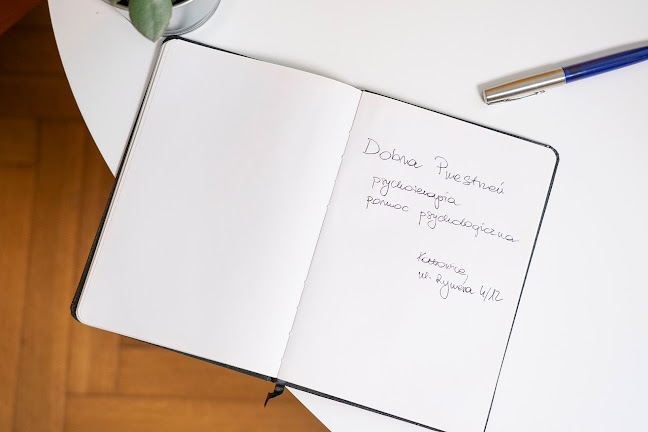 Dobra Przestrzeń
psychoterapia
pomoc psychologiczna
Katowice,
ul. Rymera 4/12